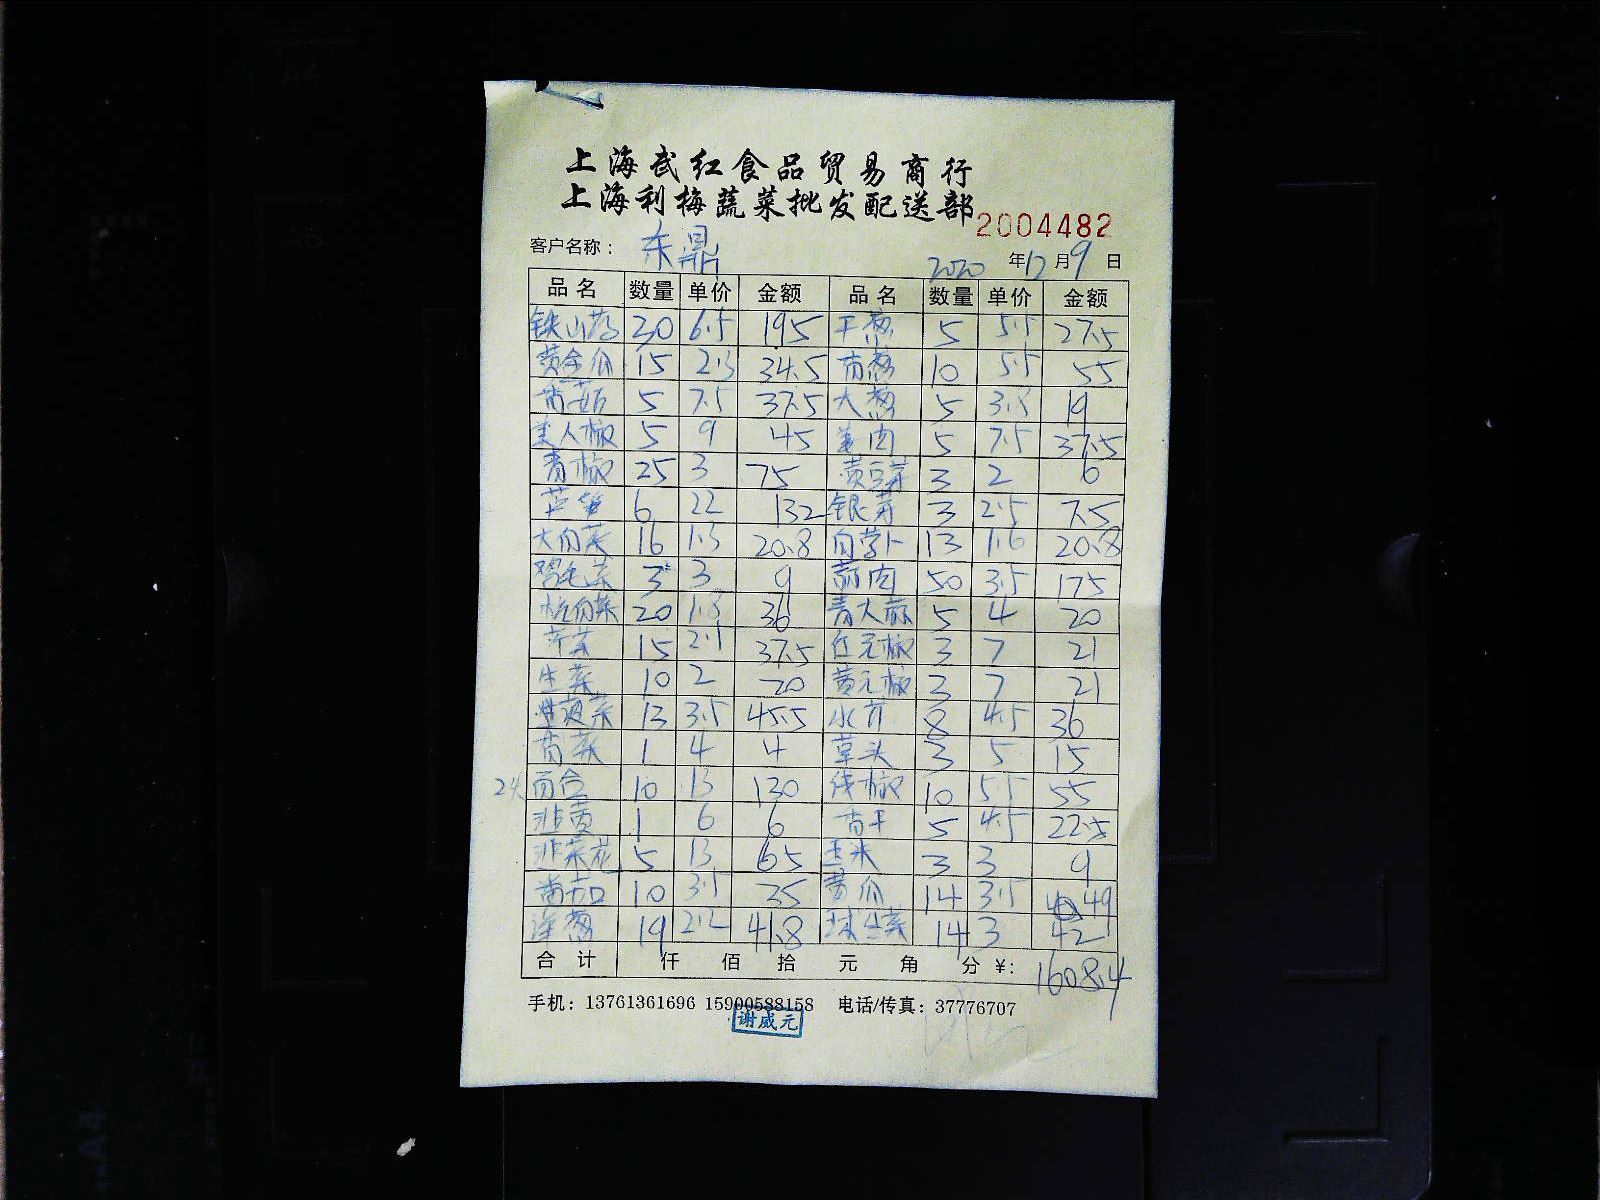 上海武红食品贸易商行
上海利梅蔬菜批发配送部
2004482
客户名称： 东鼎 2020 年 12 月 9 日
品名 数量 单价 金额 品名 数量 单价 金额
铁山药 30 6.5 195 干葱 5 5.5 27.5
黄金瓜 15 2.3 34.5 香葱 10 5.5 55
香菇 5 7.5 37.5 大葱 5 3.8 19
美人椒 5 9 45 姜肉 5 7.5 37.5
青椒 25 3 75 黄豆芽 3 2 6
芦笋 6 22 132 银芽 3 2.5 7.5
大白菜 16 1.3 20.8 白萝卜 13 1.6 20.8
鸡毛菜 3 3 9 50 3.5 175
杭白菜 20 1.8 36 青大蒜 5 4 20
芹菜 15 37.5 红元椒 3 7 21
生菜 10 2 20 黄元椒 3 7 21
菠菜 13 3.5 45.5 水芹 8 4.5 36
香菜 1 4 4 草头 3 5 15
百合 10 13 130 线椒 10 5.5 55
韭黄 1 6 6 香干 5 4.5 22.5
韭菜花 5 13 65 玉米 3 3 9
番茄 10 3.5 35 黄瓜 14 3.5 49
洋葱 19 2.2 41.8 球生菜 14 3 42
合计 仟 佰 拾 元 角 分 ¥: 1608.4
手机：13761361696 15900588158 电话/传真：37776707
谢威元